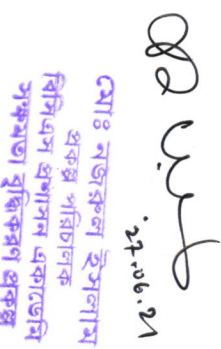 27.06.21
মোঃ নজরুল ইসলাম
প্রকল্প পরিচালক
বিসিএস প্রশাসন একাডেমি
সক্ষমতা বৃদ্ধিকরণ প্রকল্প